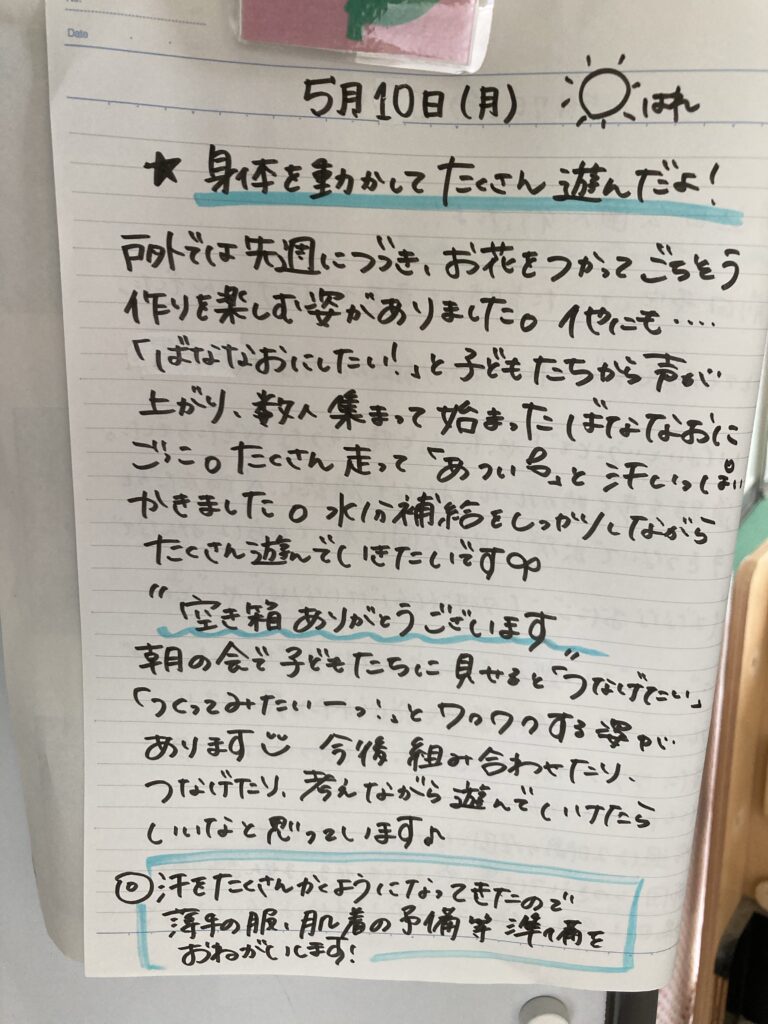 Date
5月10日(月) はれ
★ 身体を動かして たくさん 遊んだよ！
戸外では先週につづき、お花をつかってごちそう
作りを楽しむ姿がありました。他にも‥‥
「ばななおにしたい！」と子どもたちから声が
上がり、数人集まって始まったばななおに
ごっこ。たくさん走って「あついぅ」と汗いっぱい
かきました。水分補給をしっかりしながら
たくさん遊んでいきたいです
"空き箱ありがとうございます"
朝の会で子どもたちに見せると「つなげたい」
「つくってみたいーっ！」とワクワクする姿が
あります 今後 組み合わせたり、
つなげたり、考えながら遊んでいけたら
いいなと思っています♪
◎汗をたくさんかくようになってきたので
薄手の服、肌着の予備等 準備を
おねがいします！